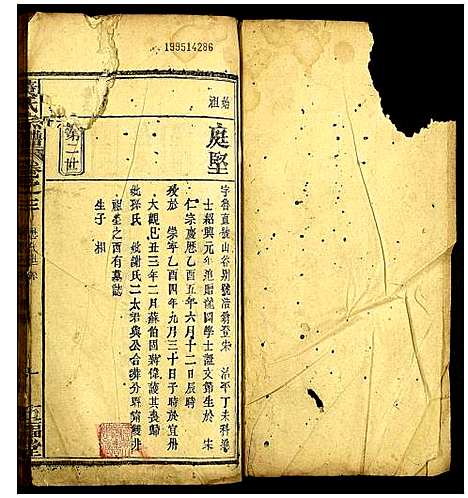 199514286
始祖
庭堅
第二世
字魯直號山谷別號涪翁登宋 治平丁未科進
士紹興元年追贈龍圖學士諡文節生於 宋
仁宗慶曆乙酉五年六月十二日辰時
歿於 崇寧乙酉四年九月三十日子時於宜州
大觀己丑三年二月蘇伯固蔣偉護其喪歸
妣孫氏 妣謝氏二太君與公合葬分寧雙井
祖塋之西有墓誌
生子 相
氏宗譜 卷之